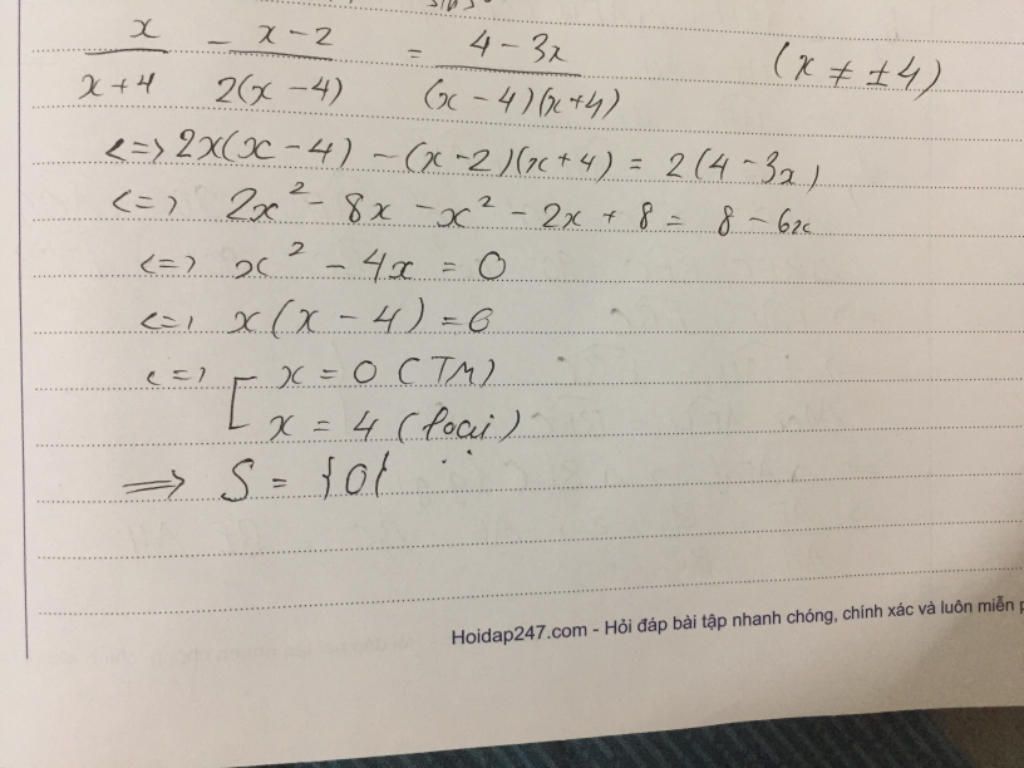 x/(x+4) - (x-2)/(2(x-4)) = (4-3x)/((x-4)(x+4)) (x ≠ ±4)
<=> 2x(x-4) - (x-2)(x+4) = 2(4-3x)
<=> 2x² - 8x - x² - 2x + 8 = 8 - 6x
<=> x² - 4x = 0
<=> x(x-4) = 0
<=> [ x = 0 (TM)
x = 4 (loại)
=> S = {0}
Hoidap247.com - Hỏi đáp bài tập nhanh chóng, chính xác và luôn miễn p